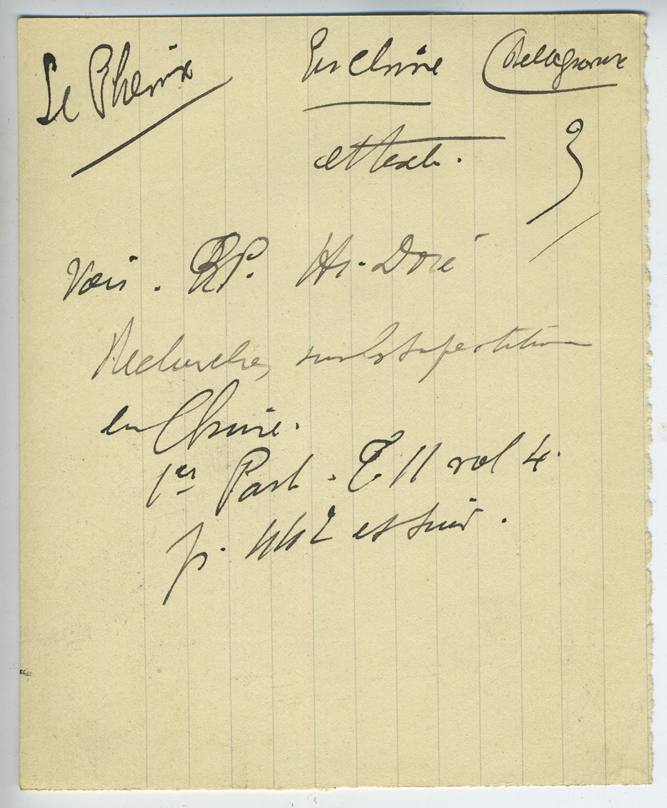 Le Phenix En chine
et texte.
Voir. RP. Hr. Doré
Recherches sur la superstition
en Chine.
1er Part. T. II vol 4.
p. 442 et suiv.